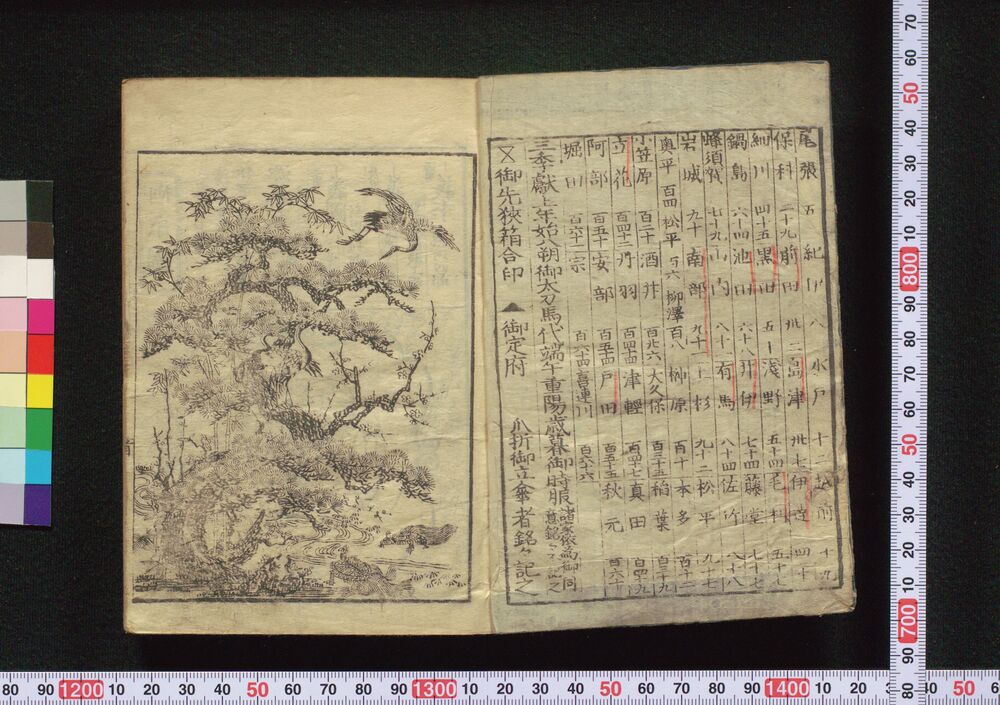 尾張 五 紀伊 八 水戸 十二 越前 十九
保科 二十九 前田 卅二 島津 卅七 伊達 四十
細川 四十五 黒田 五十 浅野 五十四 毛利 五十七
鍋島 六十四 池田 六十八 井伊 七十四 藤堂 七十七
蜂須賀 七十九 山内 八十 有馬 八十四 佐竹 八十八
岩城 九十 南部 九十一 上杉 九十二 松平 九十七
奥平 百四 松平 百六 柳澤 百八 榊原 百十 本多 百十二
小笠原 百二十 酒井 百廿六 大久保 百三十三 稲葉 百三十九
立花 百四十二 丹羽 百四十四 津輕 百四十七 真田 百四十九
阿部 百五十 安部 百五十四 戸田 秋元 百六十
堀田 百六十二 宗 百六十四 喜連川 百六十六
三季献上年始八朔御太刀馬代端午重陽歳暮御時服
御先狭箱合印 ▲御定府 爪折御立傘者銘々記之